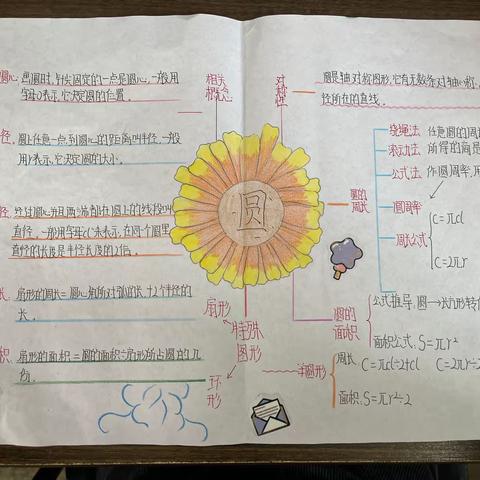 圆心
画圆时,针尖固定的一点是圆心,一般用
字母O表示,它决定圆的位置.
径
圆上任意一点到圆心的距离叫半径,一般
用r表示,它决定圆的大小.
径
经过圆心并且两端都在圆上的线段叫
直径,一般用字母d来表示,在同个圆里
直径的长度是半径长度的2倍.
长
扇形的周长=圆心角所对弧的长+2个半径的
长.
积
扇形的面积=圆的面积÷扇形所占圆的几
份.
相关
概念
对
称
性
圆是轴对称图形,它有无数条对称轴
径所在的直线.
圆
圆的
周长
绕绳法
滚动法
公式法
任意圆的周
所得的商是
作圆周率,用
圆周率
周长公式
C=πd
C=2πr
圆的
面积
公式推导:圆→长方形转
面积公式:S=πr²
特殊
图形
扇形
环
形
半圆形
周长 C=πd÷2+d C=2πr÷2
面积:S=πr²÷2